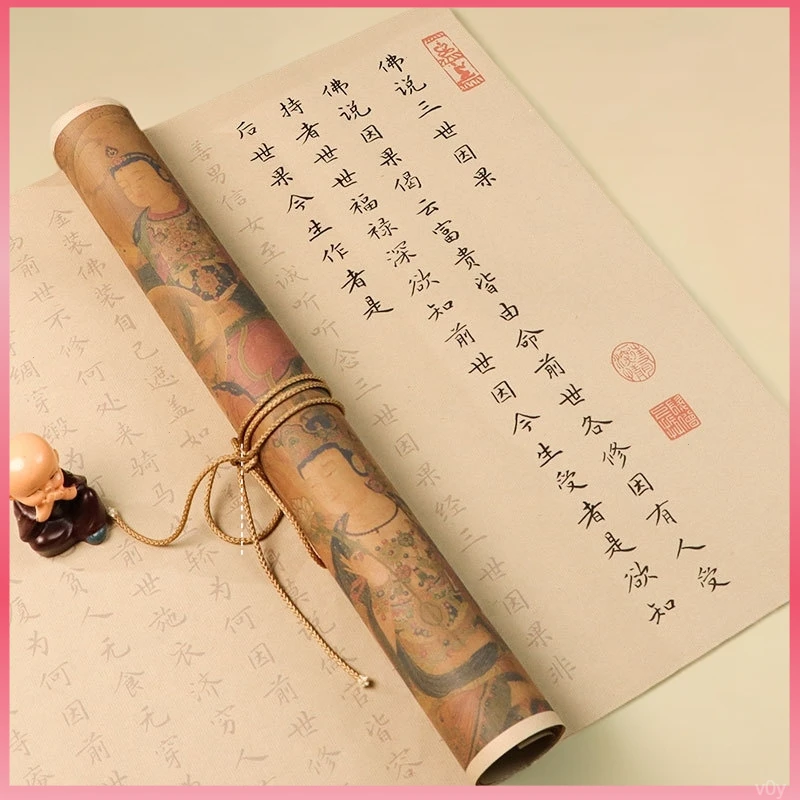 佛说三世因果
佛说因果偈云富贵皆由命前世各修因有人受
持者世世福禄深欲知前世因今生受者是欲知
后世果今生作者是
善男信女至诚听听念三世因果经三世因果非
金装佛装自己遮盖如
官皆容
前世不修何处来骑马
轿为何因前世修
绸穿缎
前世施衣济穷
贫人无食无
为何因前
寺庵